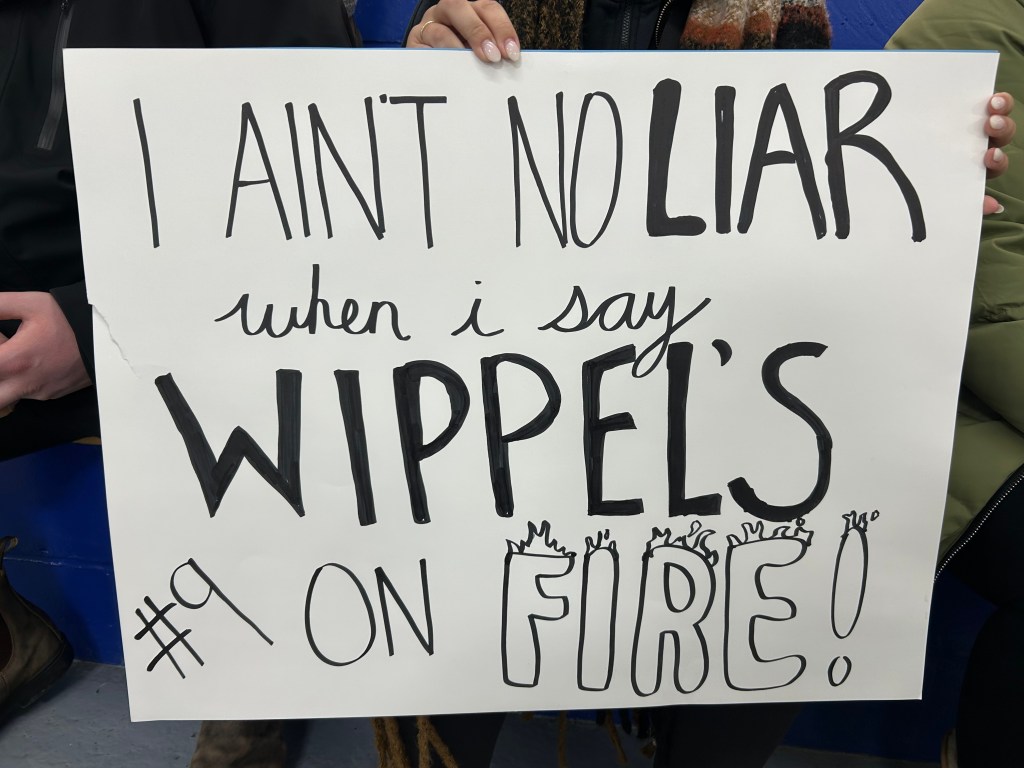 I AIN'T NO LIAR
when i say
WIPPEL'S
#9 ON FIRE!